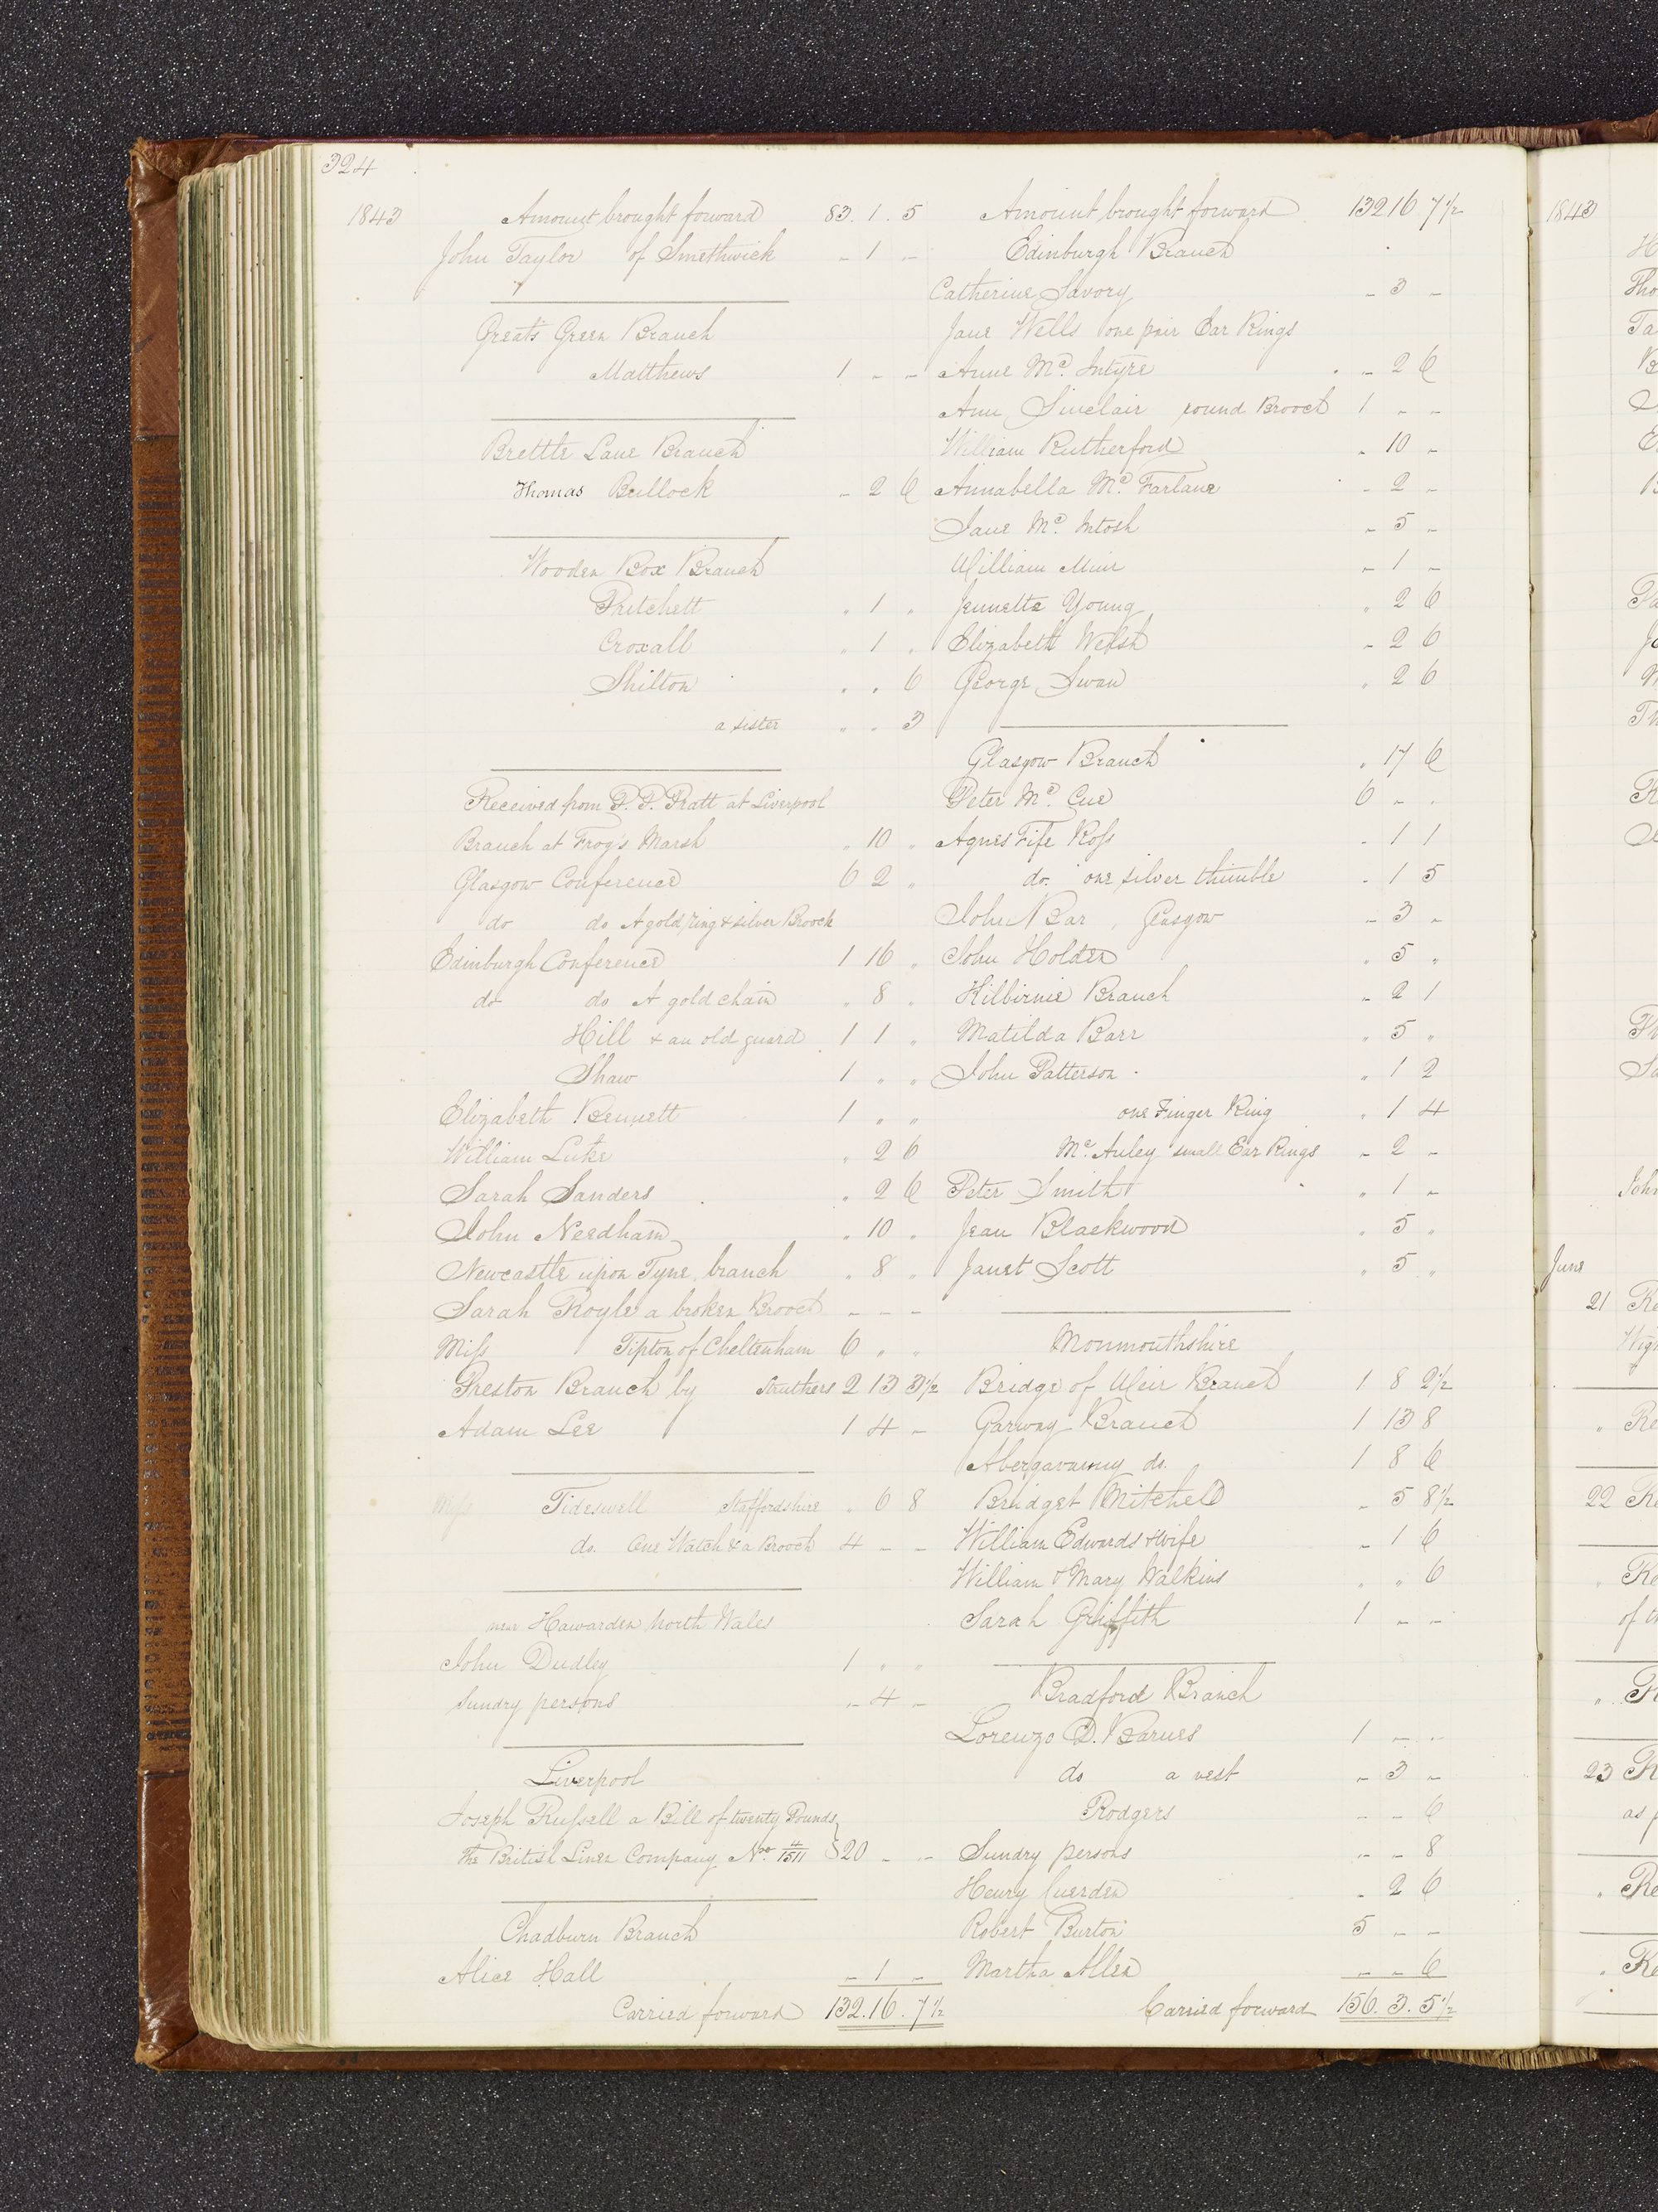 324
1843 Amount brought forward 83. 1. 5
John Taylor of Smethwick - 1 -
Greets Green Branch
Matthews 1 - -
Brettle Lane Branch
Thomas Bullock - 2 6
Wooden Box Branch
Pritchett " 1 "
Croxall " 1 "
Shilton " " 6
a sister " " 3
Received from P. P. Pratt at Liverpool
Branch at Frog's Marsh " 10 "
Glasgow Conference 6 2 "
do do A gold ring & silver Brooch
Edinburgh Conference 1 16 "
do do A gold chain " 8 "
Hill & an old guard 1 1 "
Shaw 1 " "
Elizabeth Bennett 1 " "
William Luke " 2 6
Sarah Sanders " 2 6
John Needham " 10 "
Newcastle upon Tyne branch " 8 "
Sarah Royle a broken Brooch - - -
Miss Tipton of Cheltenham 6 " "
Preston Branch by Struthers 2 13 3½
Adam Lee 1 4 -
Miss Tideswell Staffordshire " 6 8
do. One Watch & a Brooch 4 - -
near Hawarden North Wales
John Dudley 1 " "
Sundry persons - 4 -
Liverpool
Joseph Russell a Bill of twenty Pounds
The British Linen Company No. 4/1511 } 20 - -
Chadburn Branch
Alice Hall - 1 -
Carried forward 132. 16. 7½
Amount brought forward 132 16 7½
Edinburgh Branch
Catherine Savory - 3 -
Jane Wells one pair Ear Rings
Anne Mc. Intyre - 2 6
Ann Sinclair round Brooch 1 - -
William Rutherford - 10 -
Annabella Mc. Farlane - 2 -
Jane Mc. Intosh - 5 -
William Muir - 1 -
Jennette Young " 2 6
Elizabeth Welsh - 2 6
George Swan " 2 6
Glasgow Branch " 17 6
Peter Mc. Cue 6 - -
Agnes Fife Ross - 1 1
do. one silver thimble - 1 5
John Bar, Glasgow - 3 -
John Holder " 5 "
Kilbirnie Branch - 2 1
Matilda Barr " 5 "
John Patterson " 1 2
one Finger Ring " 1 4
Mc. Auley small Ear Rings - 2 -
Peter Smith " 1 -
Jean Blackwood " 5 "
Janet Scott " 5 "
Monmouthshire
Bridge of Weir Branch 1 8 2½
Garway Branch 1 13 8
Abergavenny do. 1 8 6
Bridget Mitchell - 5 8½
William Edwards & wife - 1 6
William & Mary Walkins " " 6
Sarah Griffith 1 - -
Bradford Branch
Lorenzo D. Barnes 1 - -
do a vest - 3 -
Rodgers - - 6
Sundry persons - - 8
Henry Cuerden - 2 6
Robert Burton 5 - -
Martha Allen - - 6
Carried forward 156. 3. 5½
1843
Tho
Ta
June
21
22
of th
23
as p